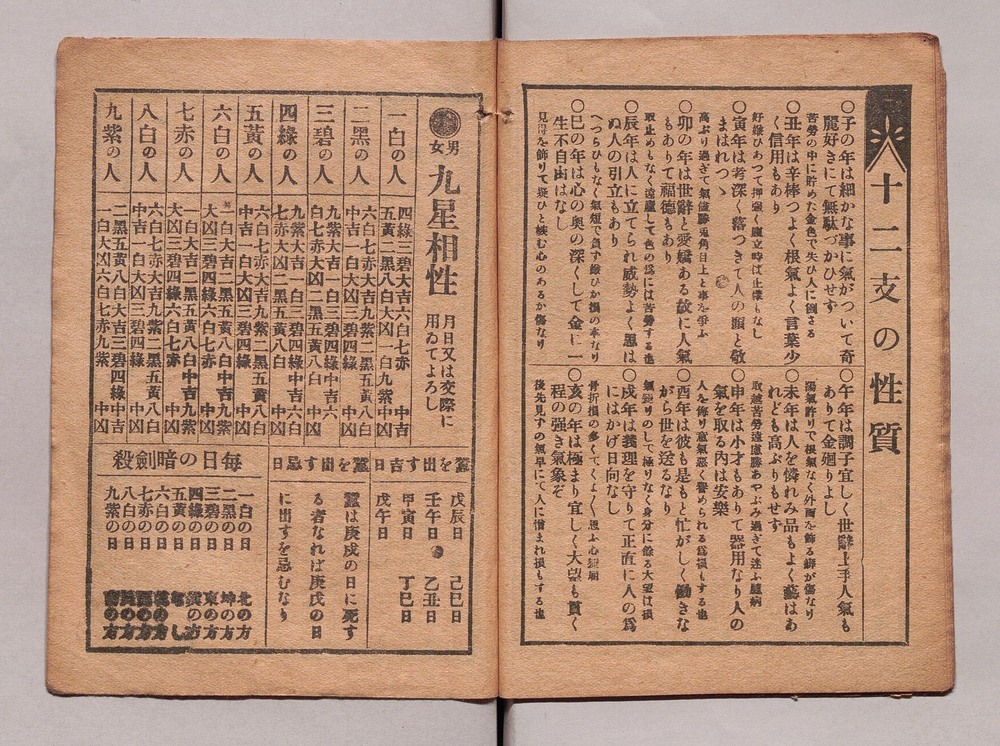 十二支の性質
○子の年は細かな事に氣がついて奇
麗好きにて無駄づかひせず
苦勞の中に貯めた金色で失ひ人に倒さる
○丑年は辛棒つよく根氣よく言葉少
く信用もあり
好嫌ひあつて押強く腹立時は止様もなし
○寅年は考深く落つきて人の頭と敬
まはれつゝ
高ぶり過ぎて氣位勝兎角目上と事を爭ふ
○卯の年は世辭と愛嬌ある故に人氣
もありて福德もあり
取止めもなく遠慮して色の爲には苦勞する也
○辰年は人に立てられ威勢よく思は
ぬ人の引立もあり
へつらひもなく氣短で負す嫌ひが損の本なり
○巳の年は心の奥の深くして金に一
生不自由はなし
見を飾りて疑ひと妬む心のあるが傷なり
○午年は調子宜しく世辭上手人氣も
ありて金廻りよし
陽氣許りで根氣なく外面を飾る癖が傷なり
○未年は人を憐れみ品もよく藝はあ
れども高ぶりもせす
取越苦勞遠慮勝あやぶみ過ぎて迷ふ臆病
○申年は小才もありて器用なり人の
氣を取る內は安樂
人を侮り意氣惡く譽められる爲損もする也
○酉年は彼も是もと忙がしく働きな
がら世を送るなり
氣許りのして極りなく身分に餘る大望は損
○戌年は義理を守りて正直に人の爲
にはかげ日向なし
骨折損の多くてくよ〳〵思ふ心
○亥の年は極まり宜しく大望も貫く
程の强き氣象ぞ
後先見ずの氣早にて人に憎まれ損もする也
男女 九星相性 月日又は交際に用ゐてよろし
一白の人 四綠三碧大吉六白七赤 中吉
五黃二黑八白大凶一白九紫 中凶
二黑の人 六白七赤大吉九紫二黑五黃八白
中吉一白大凶三碧四綠 中凶
三碧の人 九紫大吉一白三碧四綠中吉六
白七赤大凶二黑五黃八白 中凶
四綠の人 九紫大吉一白三碧四綠中吉六白
七赤大凶二黑五黃八白 中凶
五黃の人 六白七赤大吉九紫二黑五黃八白
中吉一白大凶三碧四綠 中凶
六白の人 一白大吉二黑五黃八白中吉九紫
大凶三碧四綠六白七赤 中凶
七赤の人 一白大吉二黑五黃八白中吉九紫
大凶三碧四綠六白七赤 中凶
八白の人 六白七赤大吉九紫二黑五黃八白
中吉一白大凶三碧四綠 中凶
九紫の人 二黑五黃八白大吉三碧四綠中吉
一白大凶六白七赤九紫 中凶
蠶を出す吉日
戊辰日 己巳日
壬午日 乙丑日
甲寅日 丁巳日
戊午日
蠶を出す忌日
蠶は庚戌の日に死す
る者なれば庚戌の日
に出すを忌むなり
每日の暗劍殺
一白の日 北の方
二黑の日 坤の方
三碧の日 東の方
四綠の日 巽の方
五黃の日 なし
六白の日
七赤の日
八白の日
九紫の日